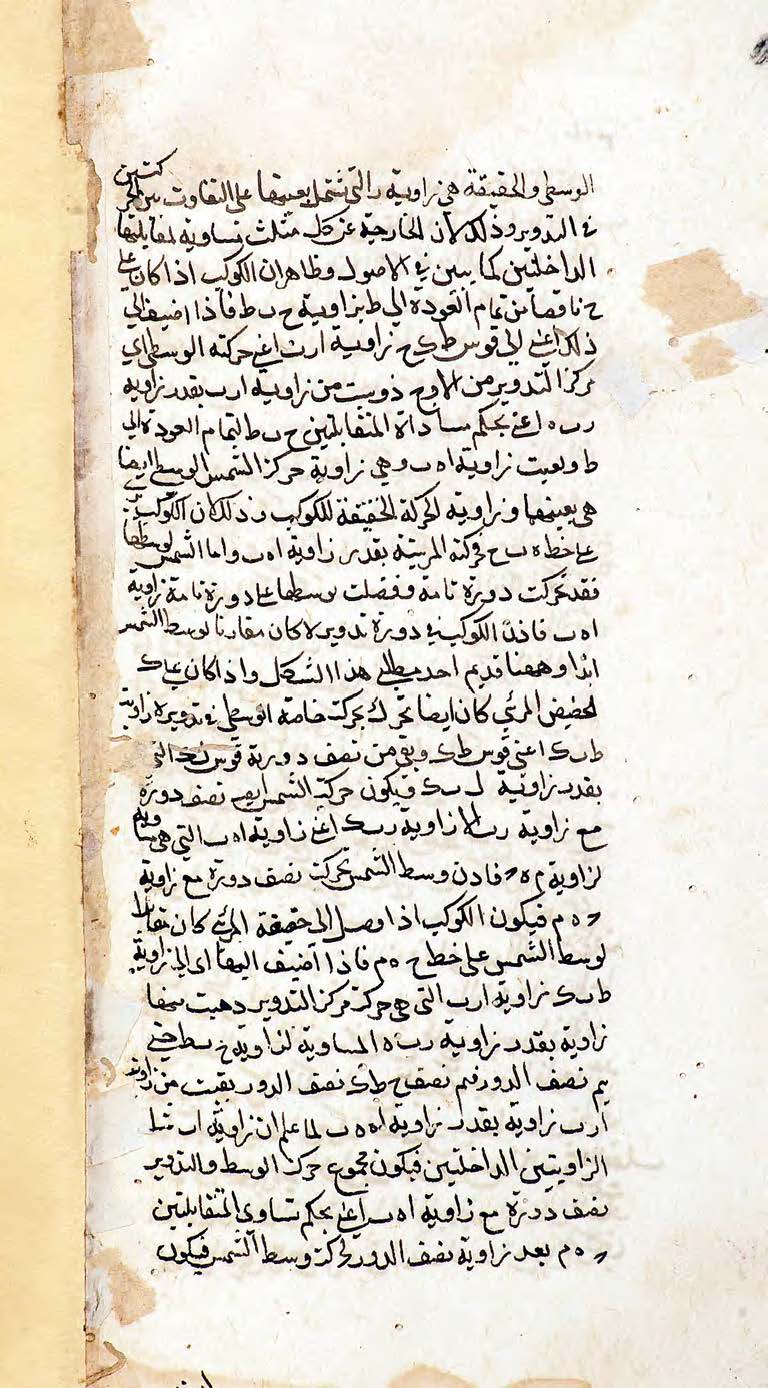 الوسطى والحقيقة هى زاوية ر التى تشتمل بعينها على التفاوت بين الحركتين
فى التدوير وذلك لان الخارجة عن كل مثلث تساوية لمقابلتها
الداخلتين كما يبين فى الاصول وظاهر ان الكوكب اذا كان على
ح ناقصا من تمام العودة الى ط بزاوية ح ب ط فاذا اضيف الى
ذلك اعنى الى قوس ط ك ح زاوية ا ر ب اعنى حركته الوسطى اى
مركز التدوير من الاوج ذوبت من زاوية ا ر ب بقدر زاوية
ر ب ه اعنى بحكم مساواة المتقابلتين ح ب ط لتمام العودة الى
ط وبقيت زاوية ا ه ب وهى زاوية حركة الشمس الوسطى ايضا
هى بعينها وزاوية الحركة الحقيقة للكوكب وذلك ان الكوكب
على خط ه ب ح فحركته المرئية بقدر زاوية ا ه ب واما الشمس بوسطها
فقد تحركت دورة تامة وفضلت بوسطها على دورة تامة زاوية
ا ه ب فاذن الكوكب فى دورة تدوير لا كان مقارنا لوسط الشمس
ابدا وههنا قديم احد مطلبى هذا الشكل واذا كان على ك
الحضيض المرئى كان ايضا تحرك بحركت خاصة الوسطى فى تدويره زاوية
ط ب ك اعنى قوس ط ك وبقى من نصف دورية قوس التى
بقدر زاوية ل ب ك فيكون حركة الشمس نصف دورة
مع زاوية زاوية ر ب ه اعنى زاوية ا ه ب التى هى مساوية
لزاوية م ه ر فاذن وسط الشمس تحركت نصف دورة مع زاوية
ر ه م فيكون الكوكب اذا وصل الى حقيقة المرئى كان مقابلا
لوسط الشمس على خط ح ه م فاذا اضيف اليها اى الى زاوية
ط ب ك زاوية ا ر ب التى هى حركة مركز التدوير ذهبت منها
زاوية بقدر زاوية ر ب ه المساوية لزاوية ح ب ط حتى
يتم نصف الدور فيتم نصف ح ط ك نصف الدور بقيت من زاوية
ا ر ب زاوية بقدر زاوية ا ه ب لما علم ان زاوية ا ر ب
الزاويتين الداخلتين فيكون مجموع حركة الوسط والتدوير
نصف دورة مع زاوية ا ه ب اعنى بحكم تساوى المتقابلتين
ر ه م بعد زاوية نصف الدور لحركة وسط الشمس فيكون